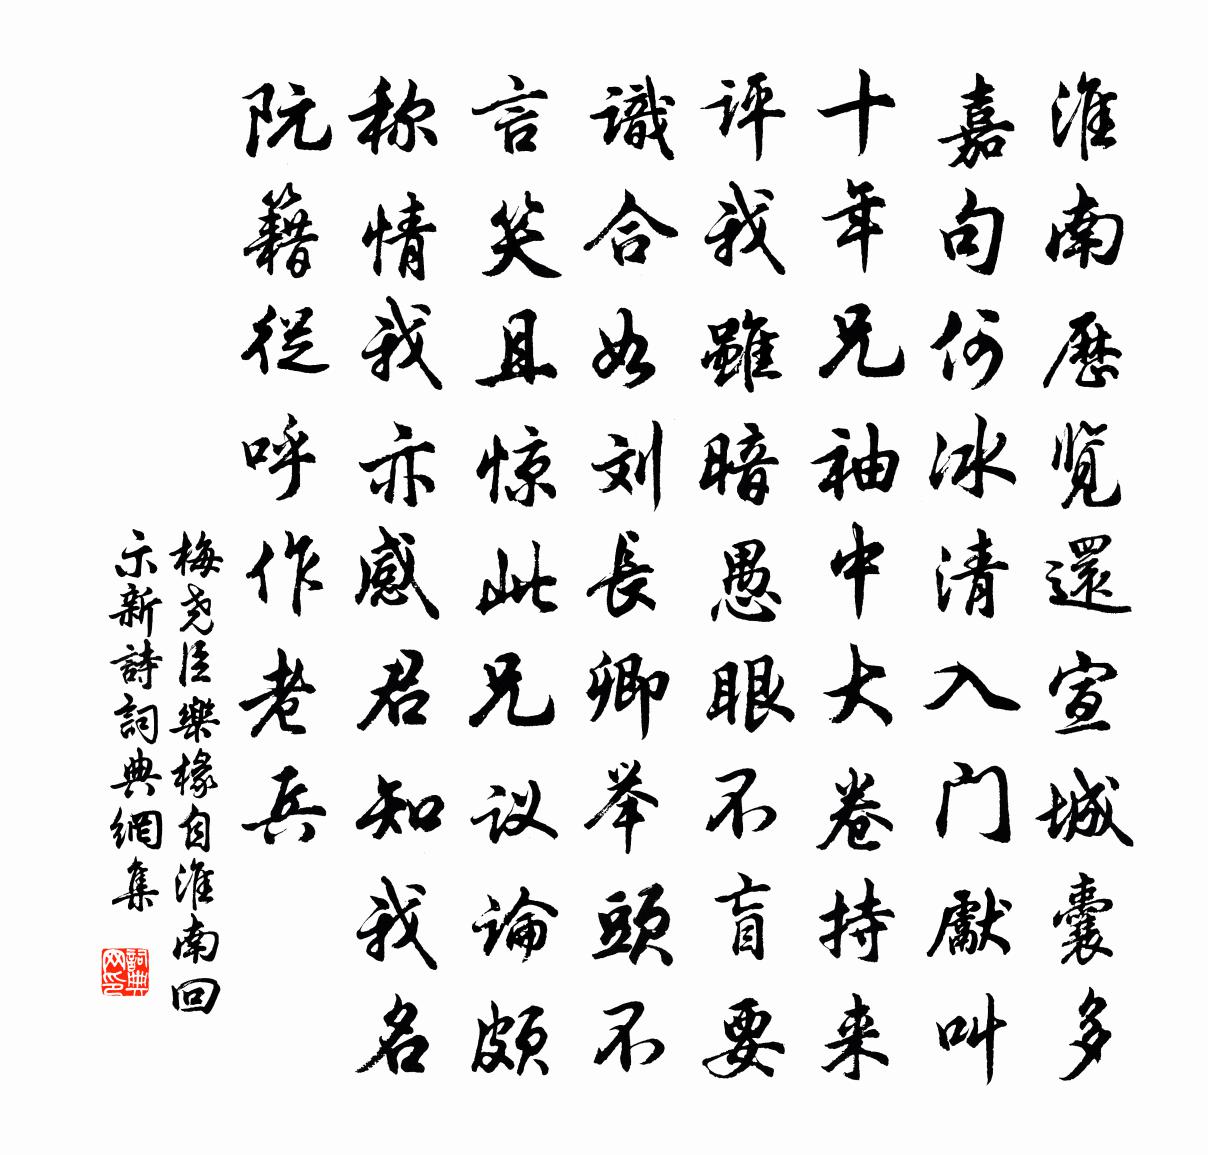 淮南歷览還宣城囊多
嘉句何冰清入门獻叫
十年兄袖中大卷持来
评我雖暗愚眼不盲要
識合如刘長卿举頭不
言笑且惊此兄议论颇
称情我亦感君知我名
阮籍從呼作老兵
梅尧臣樂椽自淮南回
示新詩詞典網集
詞典
网印